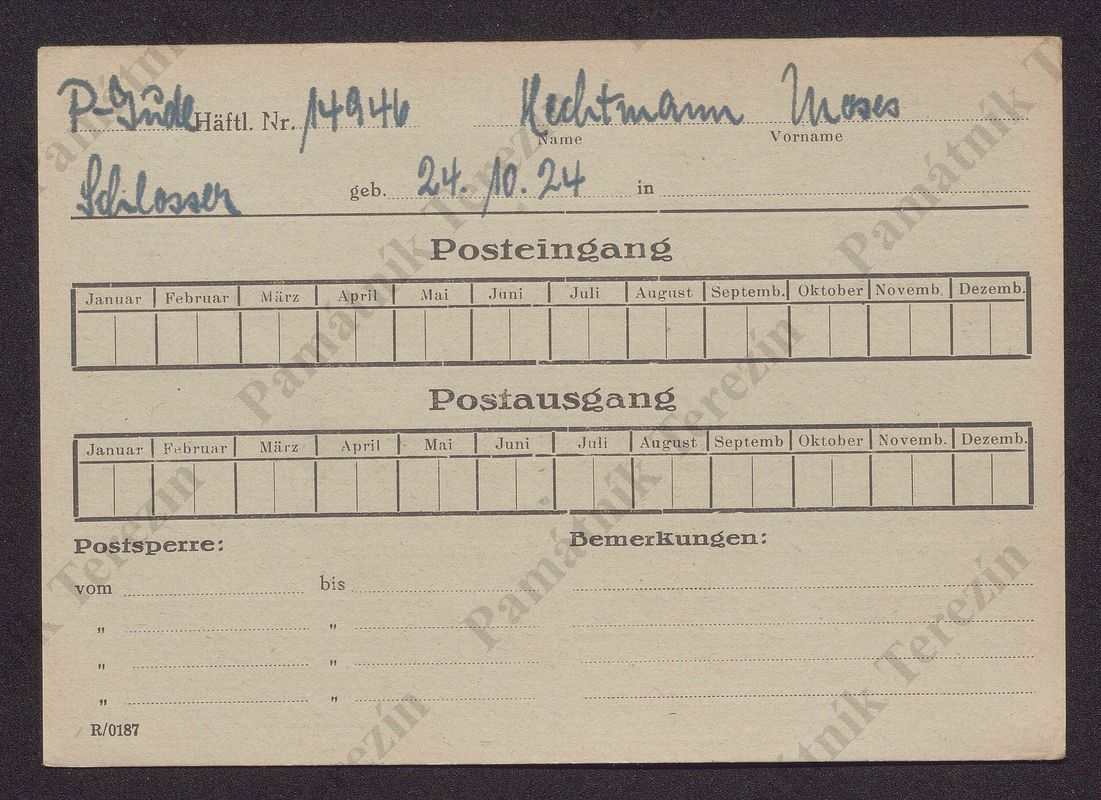 P-Jude Häftl. Nr. 14946 Hechtmann Moses
Name Vorname
Schlosser geb. 24./10.24 in
Posteingang
Januar Februar März April Mai Juni Juli August Septemb. Oktober Novemb. Dezemb.
Postausgang
Januar Februar März April Mai Juni Juli August Septemb Oktober Novemb. Dezemb.
Postsperre: Bemerkungen:
vom bis
" "
" "
" "
R/0187
Památník Terezín